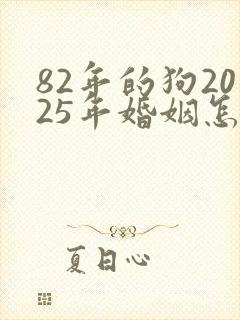 82年的狗20
25年婚姻怎
夏日心